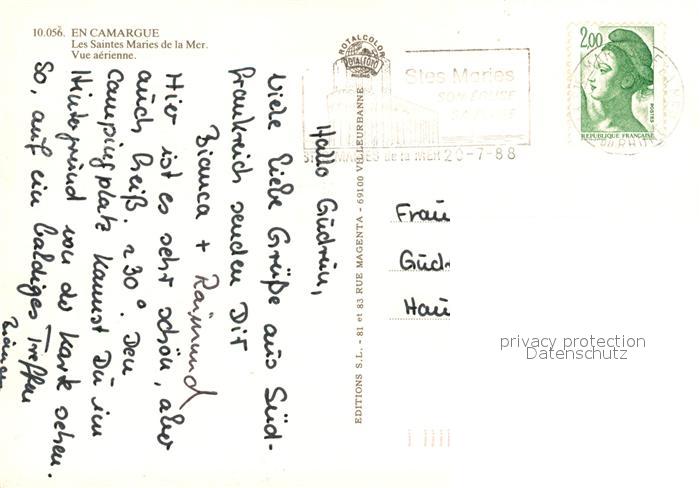 10.056. EN CAMARGUE
Les Saintes Maries de la Mer.
Vue aérienne.
ROTALCOLOR
ROTALFOTO
MILANO
Stes Maries
SON EGLISE
de la MER 20-7-88
2,00
POSTES
REPUBLIQUE FRANÇAISE
EDITIONS S.L. - 81 et 83 RUE MAGENTA - 69100 VILLEURBANNE
Hallo Gudrun,
Viele liebe Grüße aus Süd-
frankreich senden Dir
Bianca + Raimund
Hier ist es sehr schön, aber
auch heiß. ≈ 30°. Den
Campingplatz kannst Du im
Hintergrund von der Karte sehen.
So, auf ein baldiges Treffen
Bianca
Frau
Gud
Hau
privacy protection
Datenschutz